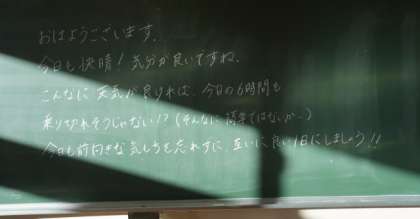 おはようございます。
今日も快晴！気分が良いですね。
こんなに天気が良ければ、今日の6時間も
乗り切れそうじゃない!?（そんなに簡単ではないか…）
今日も前向きな気もちを忘れずに、互いに良い1日にしましょう!!